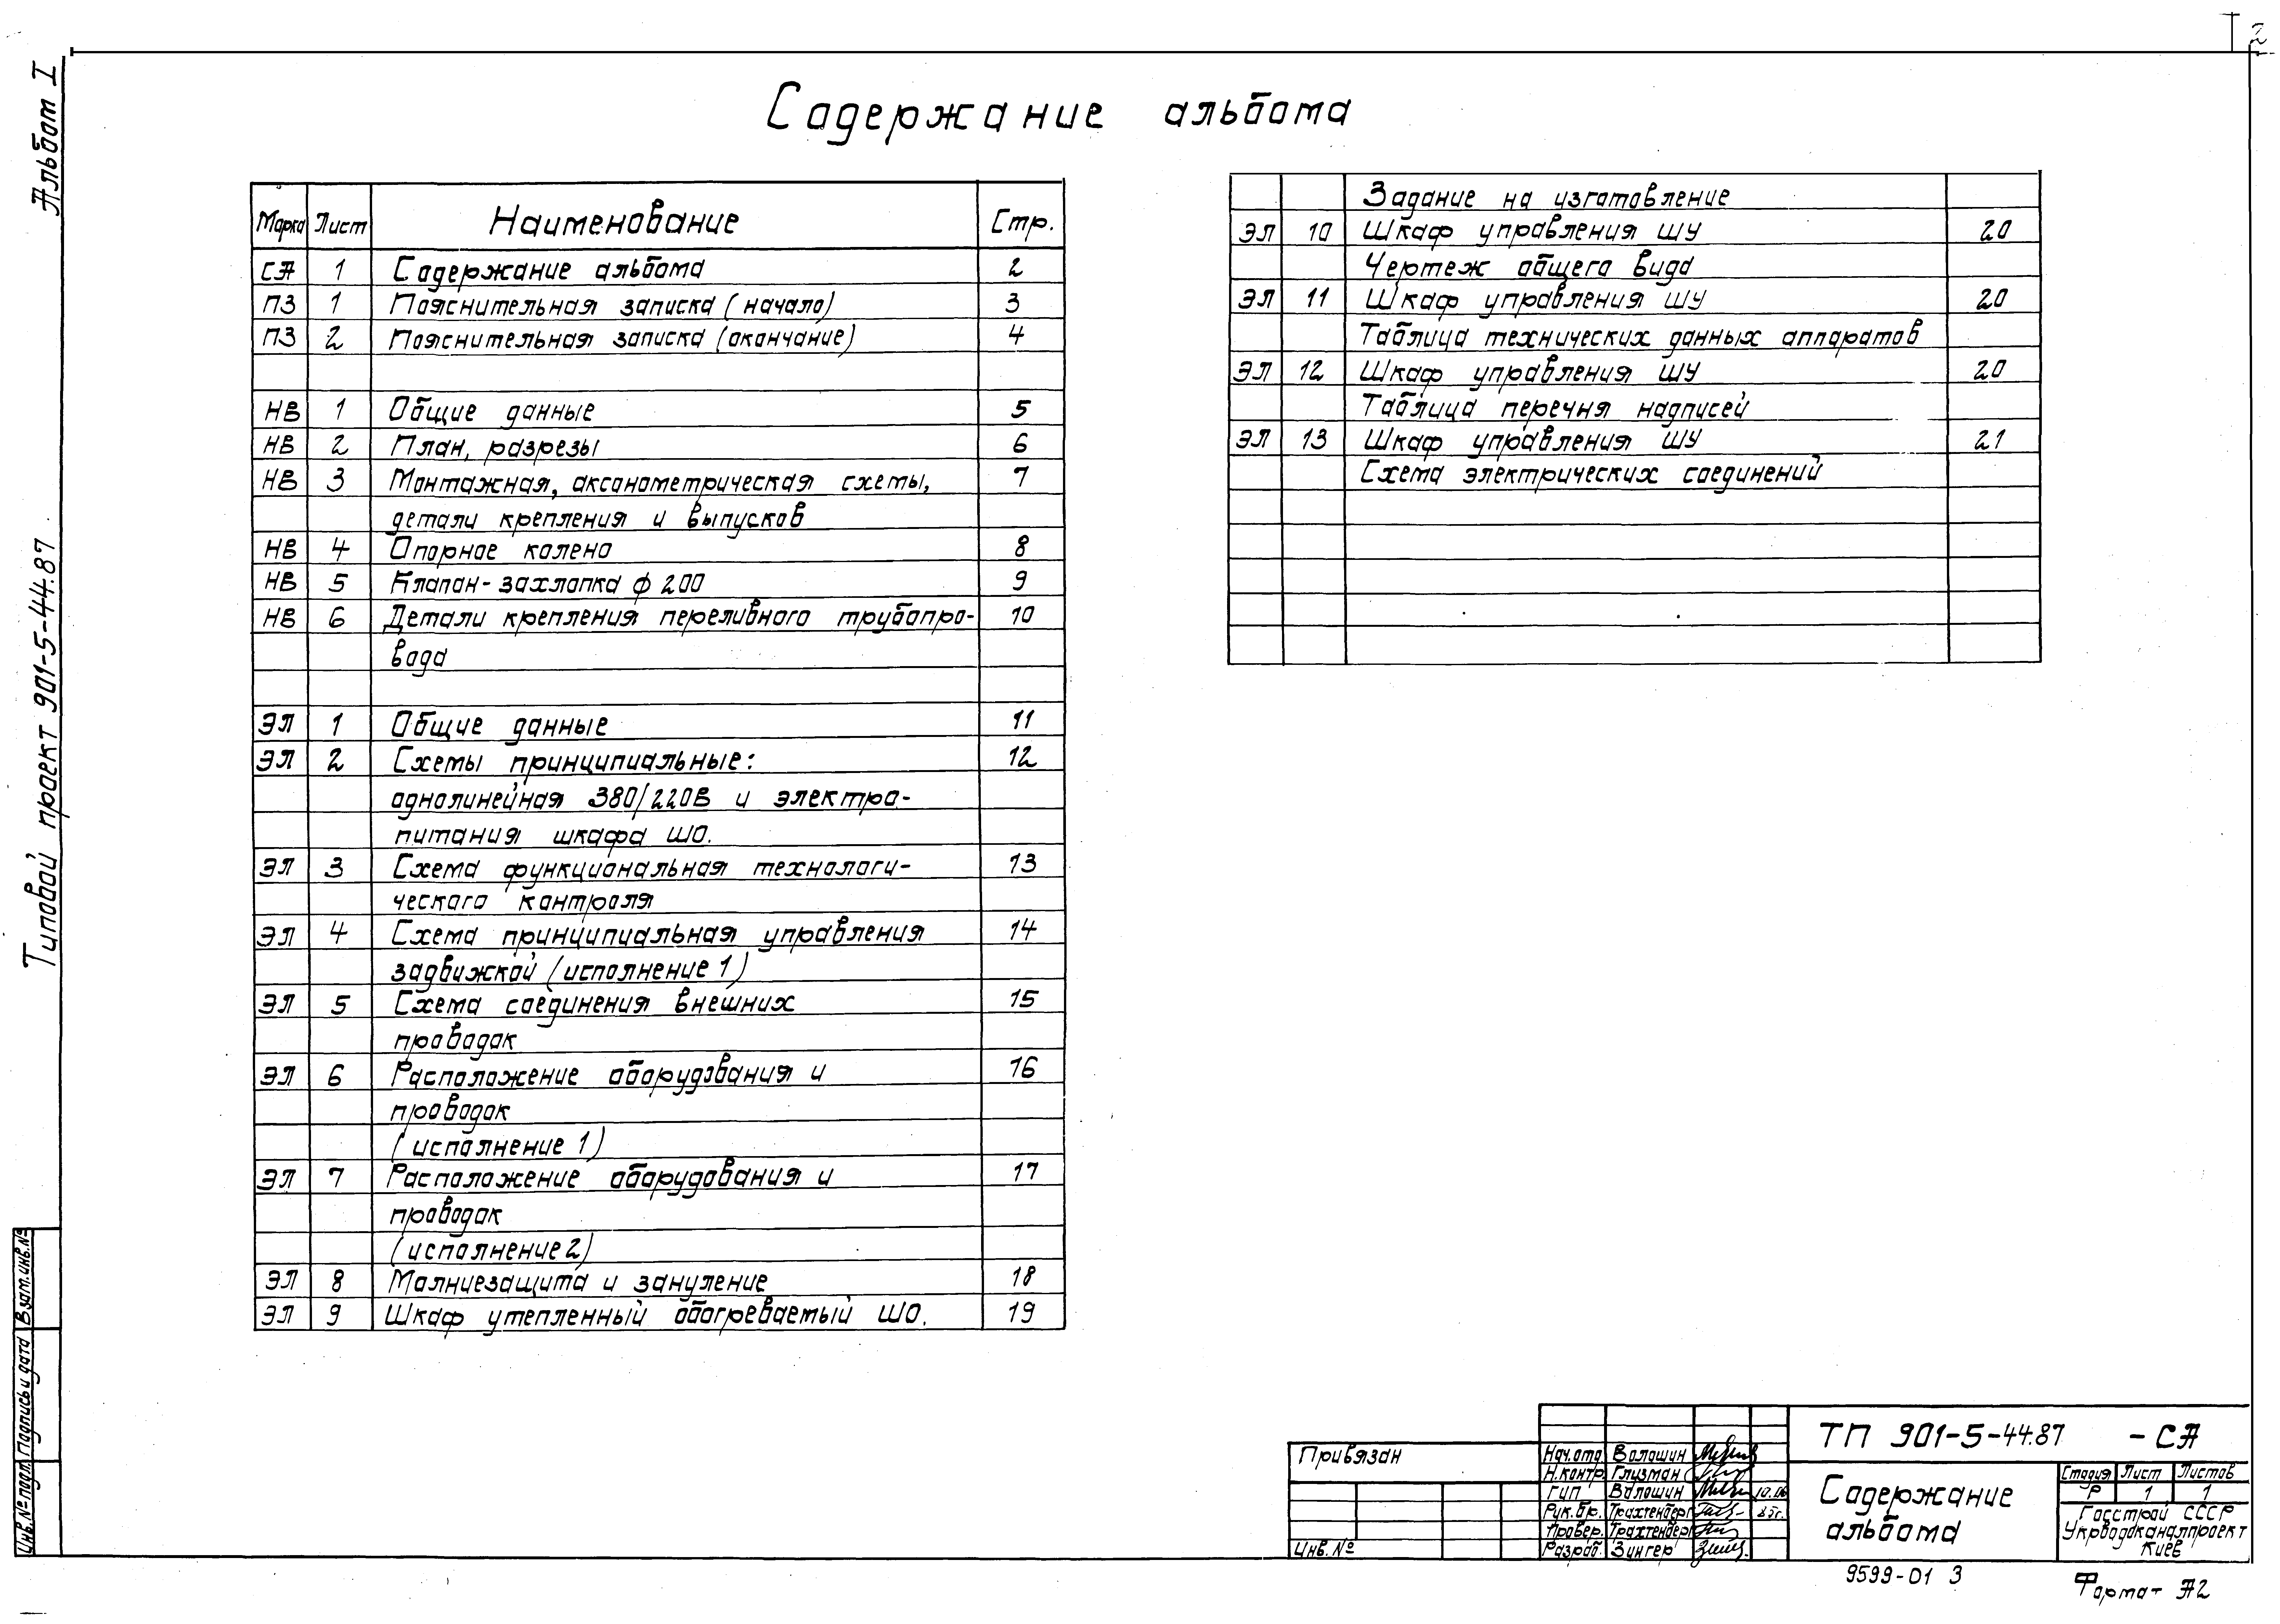 2
Альбом I
Типовой проект 901-5-44.87
Содержание альбома
Марка Лист Наименование Стр.
СА 1 Содержание альбома 2
ПЗ 1 Пояснительная записка (начало) 3
ПЗ 2 Пояснительная записка (окончание) 4
НВ 1 Общие данные 5
НВ 2 План, разрезы 6
НВ 3 Монтажная, аксонометрическая схемы, 7
детали крепления и выпусков
НВ 4 Опорное колено 8
НВ 5 Клапан-захлопка ф 200 9
НВ 6 Детали крепления переливного трубопро- 10
вода
ЭЛ 1 Общие данные 11
ЭЛ 2 Схемы принципиальные: 12
однолинейная 380/220В и электро-
питания шкафа ШО.
ЭЛ 3 Схема функциональная технологи- 13
ческого контроля
ЭЛ 4 Схема принципиальная управления 14
задвижкой (исполнение 1)
ЭЛ 5 Схема соединения внешних 15
проводок
ЭЛ 6 Расположение оборудования и 16
проводок
(исполнение 1)
ЭЛ 7 Расположение оборудования и 17
проводок
(исполнение 2)
ЭЛ 8 Молниезащита и зануление 18
ЭЛ 9 Шкаф утепленный обогреваемый ШО. 19
Задание на изготовление
ЭЛ 10 Шкаф управления ШУ 20
Чертеж общего вида
ЭЛ 11 Шкаф управления ШУ 20
Таблица технических данных аппаратов
ЭЛ 12 Шкаф управления ШУ 20
Таблица перечня надписей
ЭЛ 13 Шкаф управления ШУ 21
Схема электрических соединений
Инв.№ подл. Подпись и дата Взам.инв.№
Привязан
Инв. №
Нач.отд Волошин
Н.контр. Глизман
ГИП Волошин
Рук.бр. Трахтенберг
Провер. Трахтенберг
Разраб. Зингер
ТП 901-5-44.87 -СА
Содержание
альбома
Стадия Лист Листов
Р 1 1
Госстрой СССР
Укрводоканалпроект
Киев
9599-01 3
Формат А2